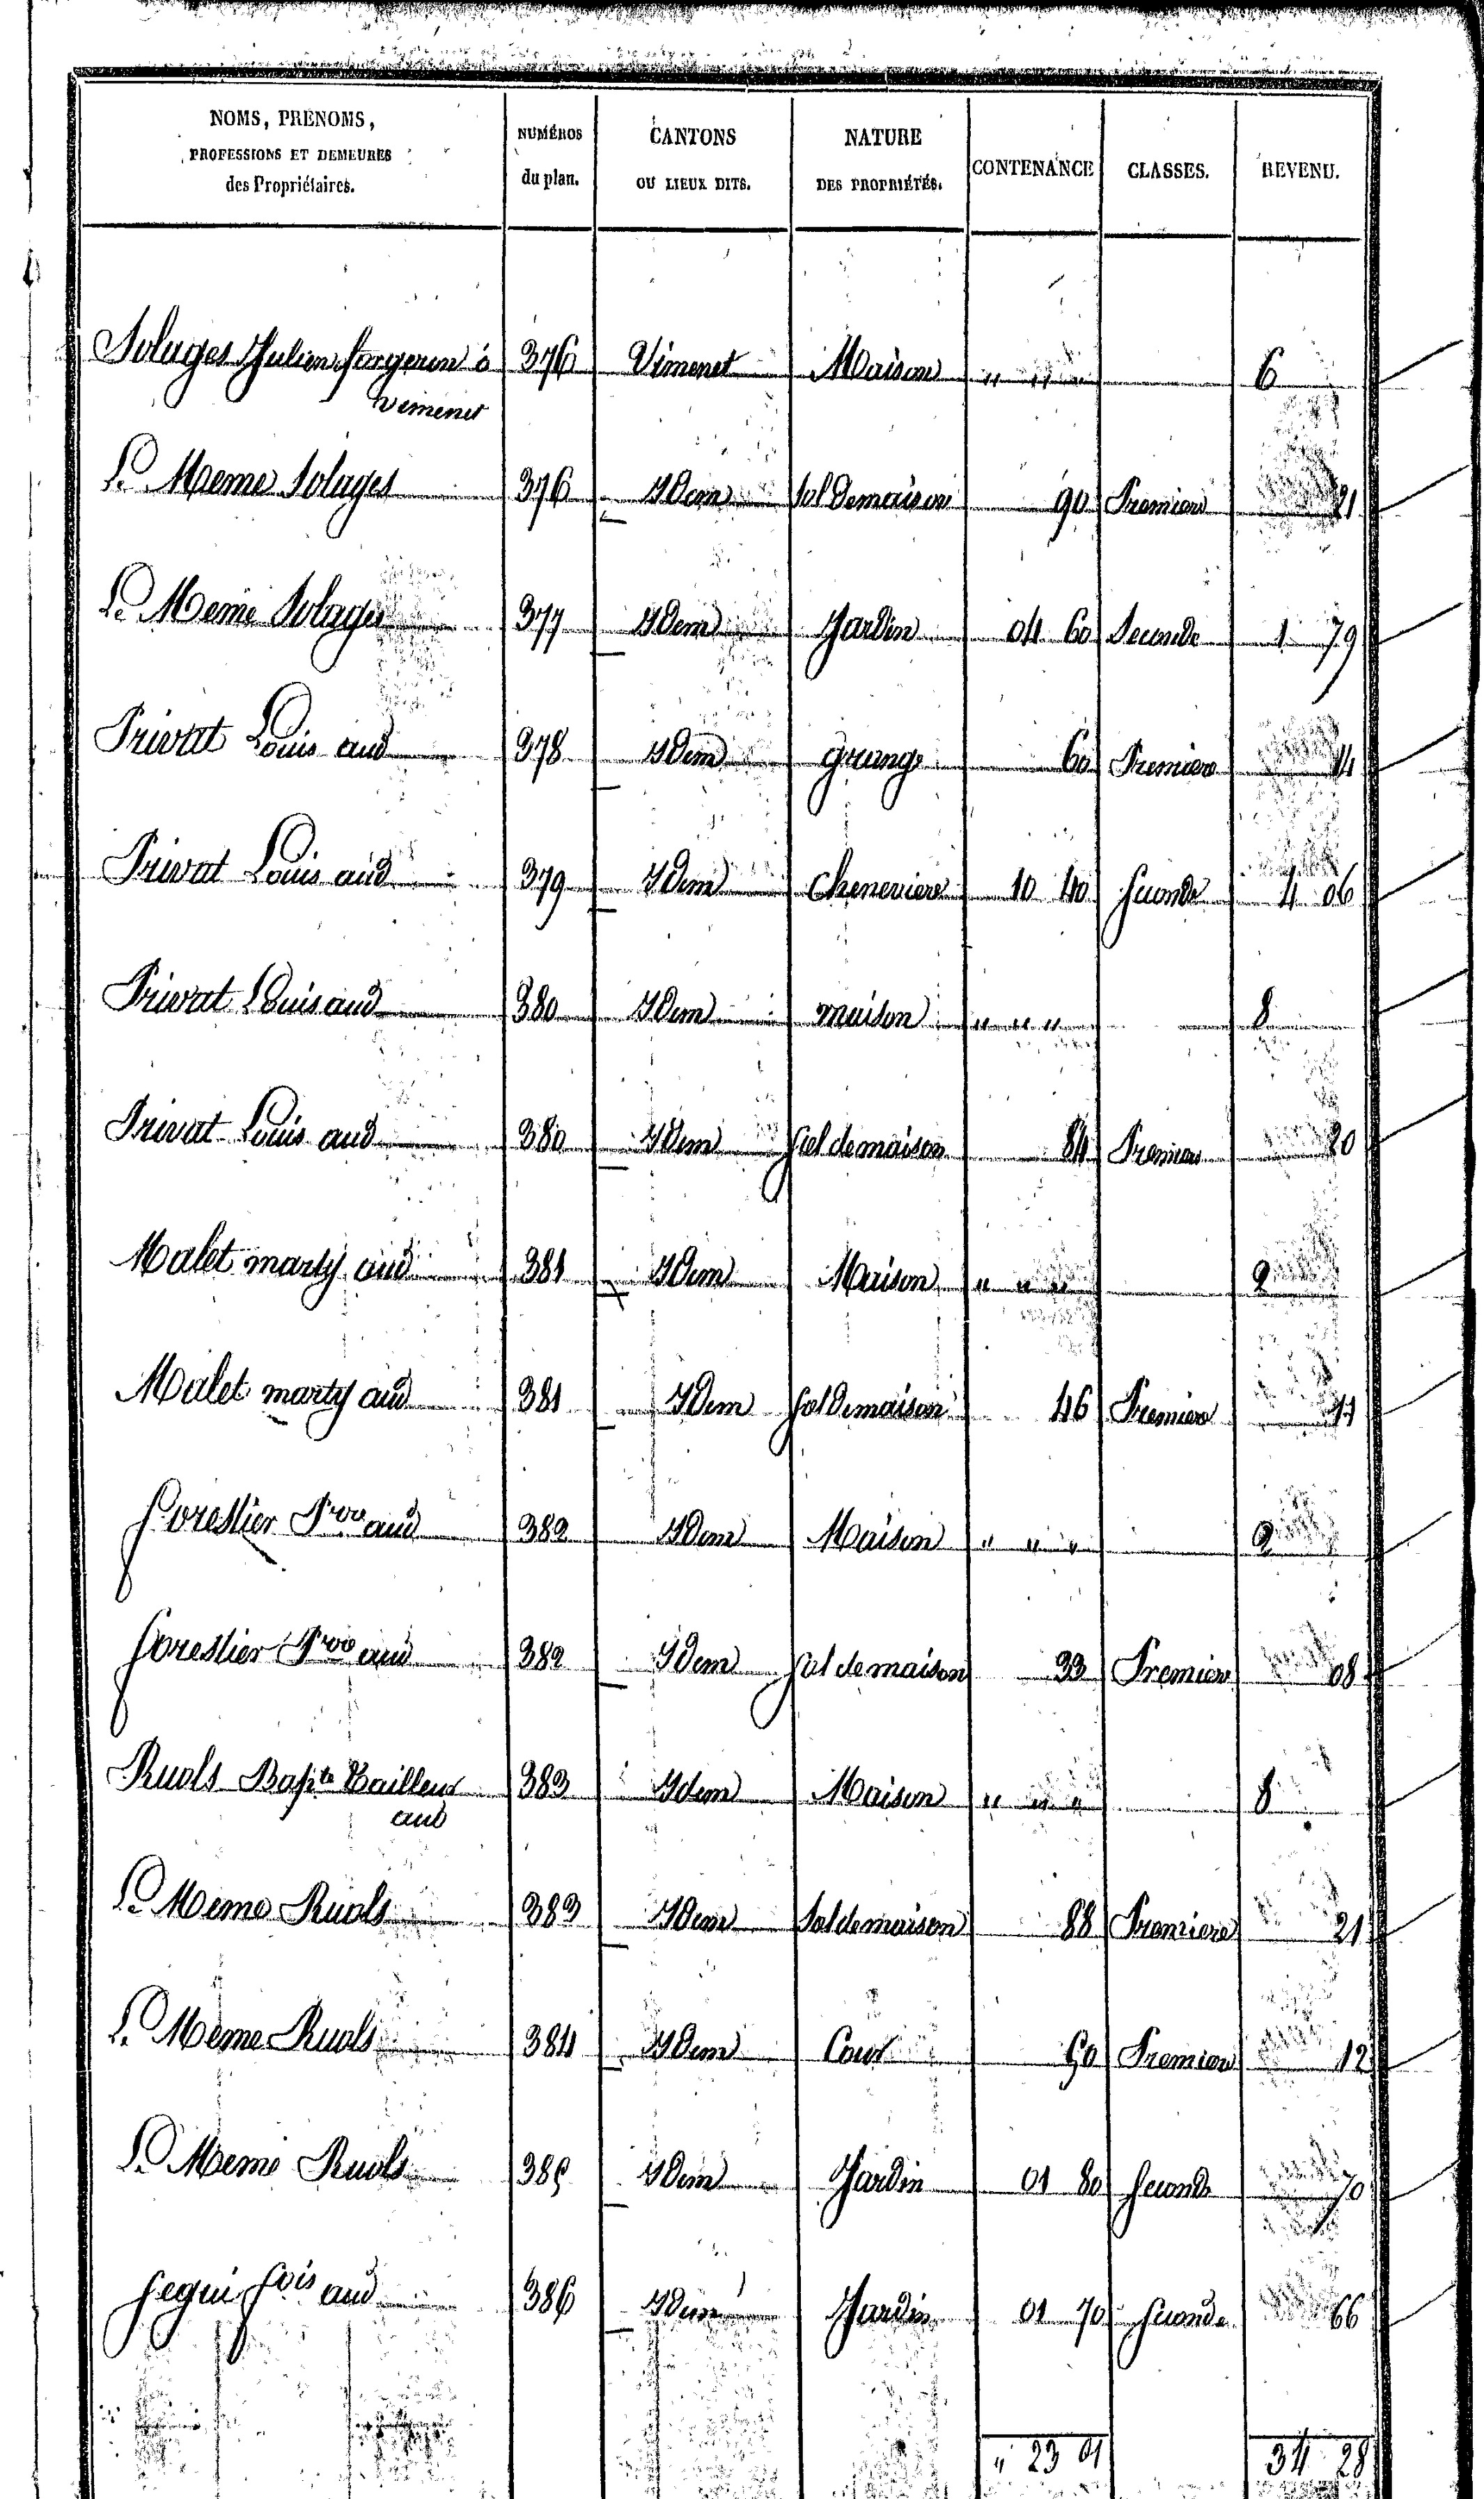 NOMS, PRÉNOMS,
PROFESSIONS ET DEMEURES
des Propriétaires.
NUMÉROS
du plan.
CANTONS
OU LIEUX DITS.
NATURE
DES PROPRIÉTÉS.
CONTENANCE
CLASSES.
REVENU.
Solages Julien forgeron à 376 Vimenet Maison " " " 6
Vimenet
Le Meme Solages 376 IDem Sol De maison 90 Premiere 21
Le Meme Solages 377 IDem Jardin 04 60 Seconde 1 79
Privat Louis aud 378 IDem grange 60 Premiere 14
Privat Louis aud 379 IDem Cheneviere 10 40 Seconde 4 06
Privat Louis aud 380 IDem maison " " " 8
Privat Louis aud 380 IDem Sol de maison 84 Premiere 20
Malet marty aud 381 IDem Maison " " " 2
Malet marty aud 381 IDem Sol De maison 46 Premiere 11
Forestier aud 382 IDem Maison " " " 2
Forestier aud 382 IDem Sol de maison 33 Premiere 08
Ruols Bapte Tailleur 383 Idem Maison " " " 8
aud
Le Meme Ruols 383 IDem Sol de maison 88 Premiere 21
Le Meme Ruols 384 IDem Cour 50 Premiere 12
Le Meme Ruols 385 IDem Jardin 01 80 Seconde 70
Segui fois aud 386 IDem Jardin 01 70 Seconde 66
" 23 01 34 28